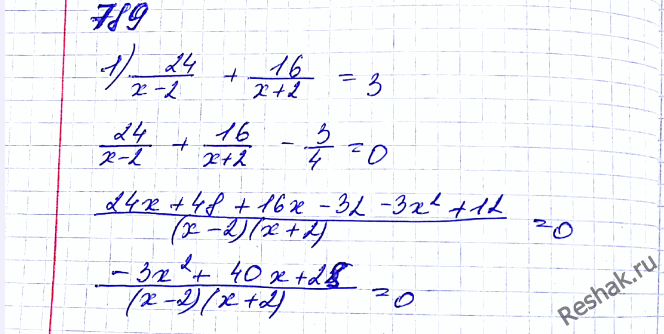 789
1) 24/(x-2) + 16/(x+2) = 3
24/(x-2) + 16/(x+2) - 3/4 = 0
(24x + 48 + 16x - 32 - 3x² + 12)/((x-2)(x+2)) = 0
(-3x² + 40x + 28)/((x-2)(x+2)) = 0
Reshak.ru